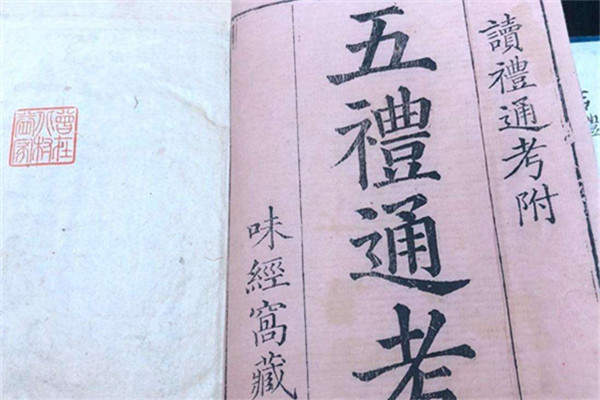 讀禮通考附
五禮通考
味經窩藏